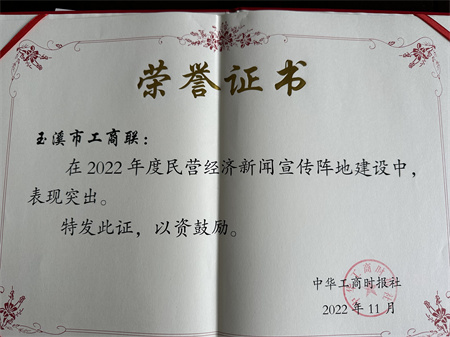 荣誉证书
玉溪市工商联：
在2022年度民营经济新闻宣传阵地建设中，
表现突出。
特发此证，以资鼓励。
中华工商时报社
2022年11月